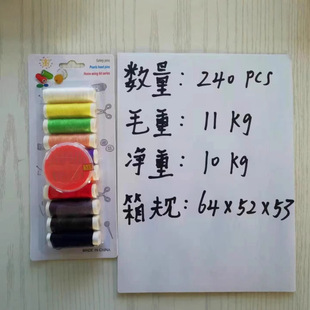 数量：240 PCS
毛重：11 Kg
净重：10 Kg
箱规：64×52×53